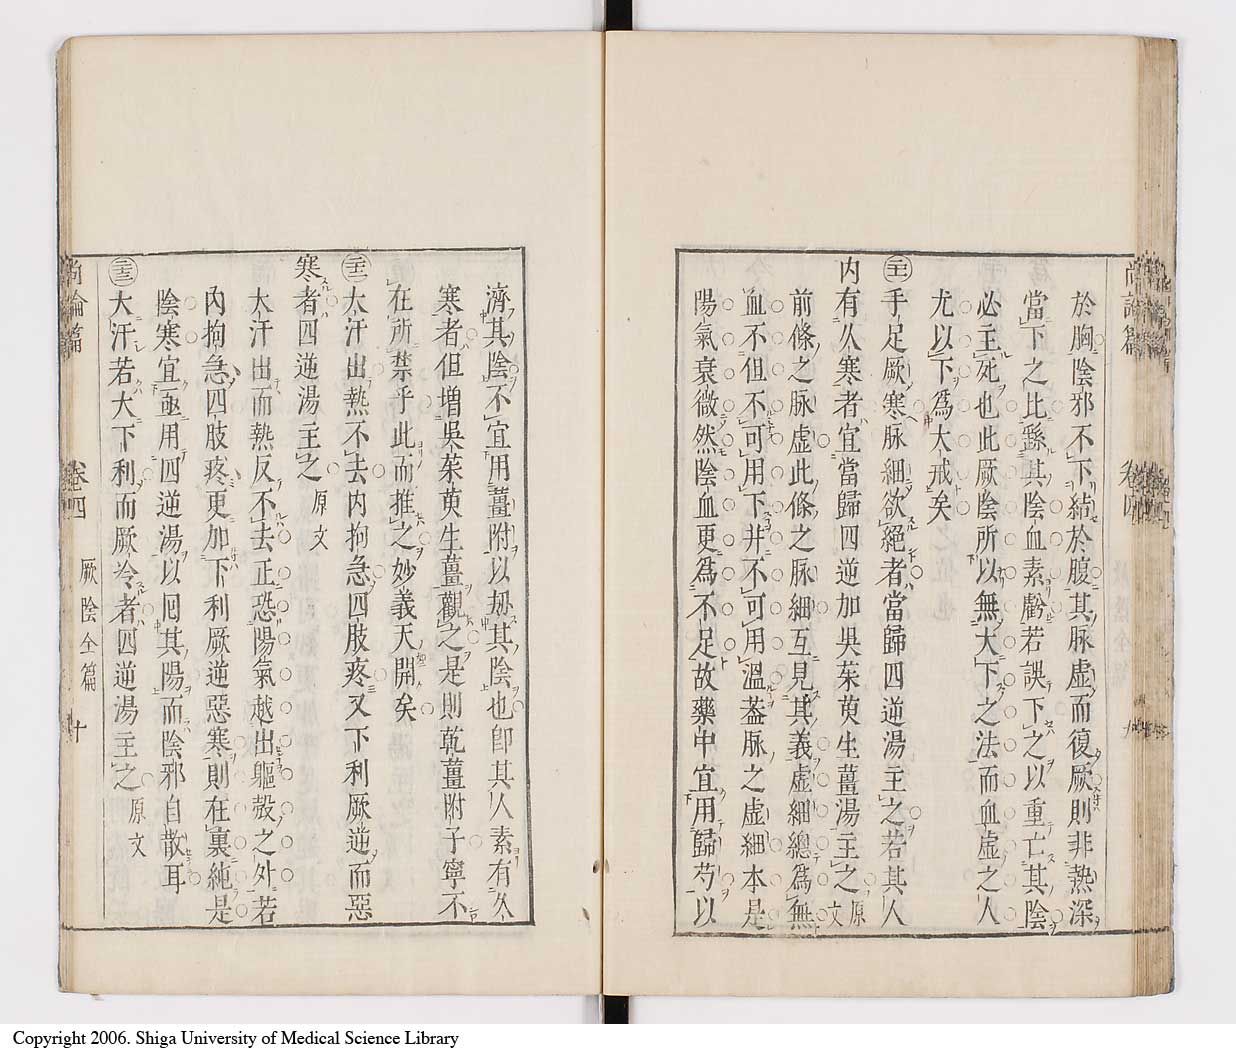 於胸陰邪不下結於腹其脉虚而復厥則非熱深
當下之比繇其陰血素虧若誤下之以重亡其陰
必主死也此厥陰所以無大下之法而血虚之人
尤以下爲大戒矣
手足厥寒脉細欲絕者當歸四逆湯主之若其人
内有久寒者宜當歸四逆加吳茱萸生薑湯主之 原文
前條之脉虚此條之脉細互見其義虚細總爲無
血不但不可用下并不可用溫蓋脉之虚細本是
陽氣衰微然陰血更爲不足故藥中宜用歸芍以
濟其陰不宜用薑附以刼其陰也卽其人素有久
寒者但增吳茱萸生薑觀之是則乾薑附子寧不
在所禁乎此而推之妙義天開矣
大汗出熱不去内拘急四肢疼又下利厥逆而惡
寒者四逆湯主之 原文
大汗出而熱反不去正恐陽氣越出軀殼之外若
內拘急四肢疼更加下利厥逆惡寒則在裏純是
陰寒宜亟用四逆湯以囘其陽而陰邪自散耳
大汗若大下利而厥冷者四逆湯主之 原文
尚論篇 卷四 厥陰全篇 十
Copyright 2006. Shiga University of Medical Science Library